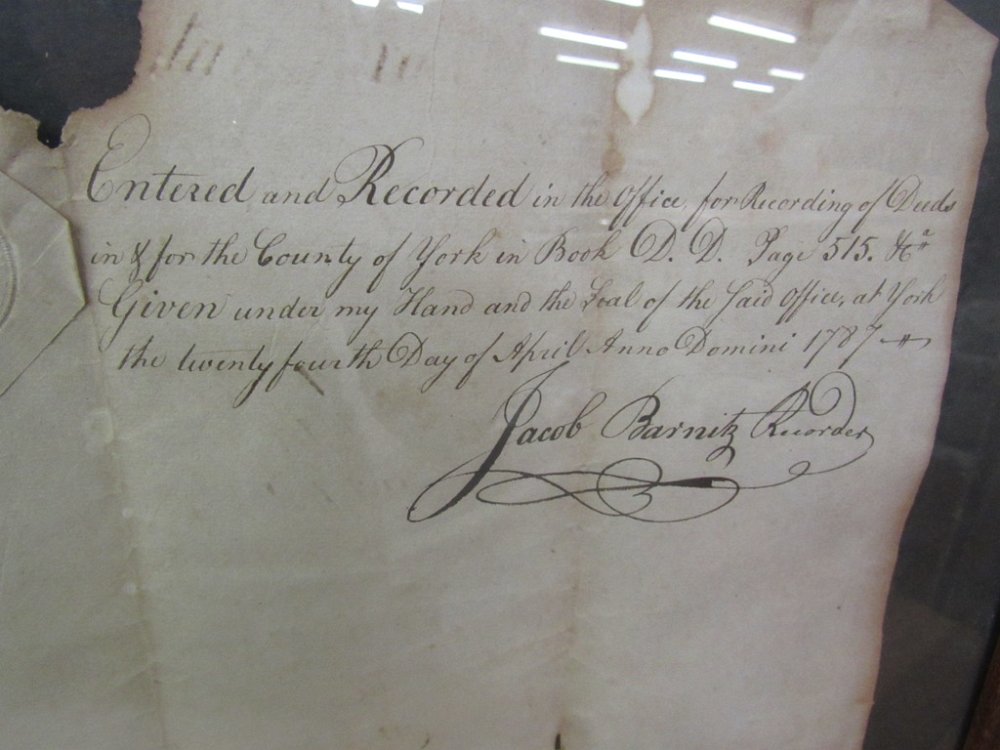 Entered and Recorded in the Office for Recording of Deeds
in & for the County of York in Book D. D. Page 515. &ca
Given under my Hand and the Seal of the Said Office, at York
the twenty fourth Day of April Anno Domini 1787
Jacob Barnitz Recorder